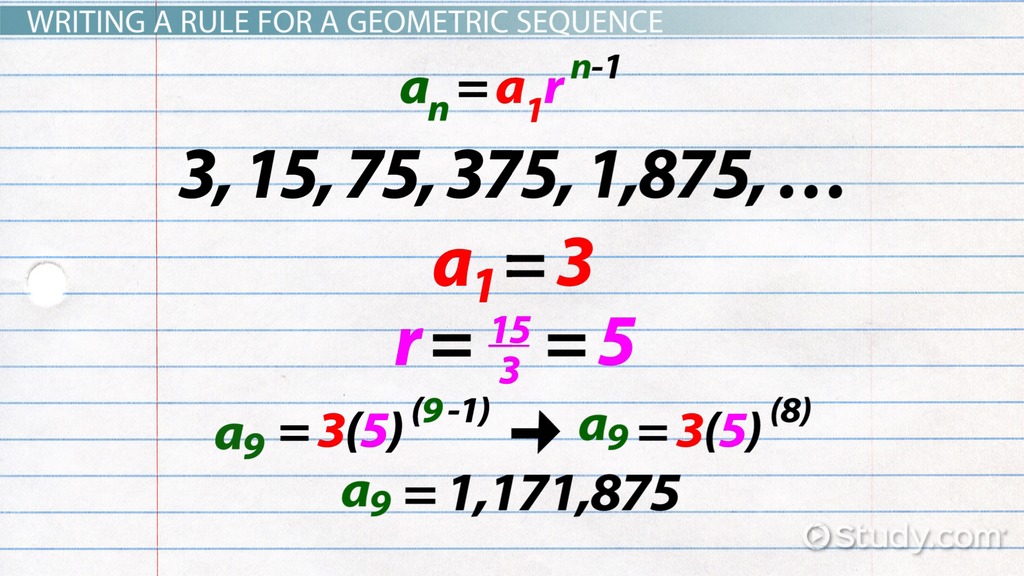 WRITING A RULE FOR A GEOMETRIC SEQUENCE
aₙ = a₁rⁿ⁻¹
3, 15, 75, 375, 1,875, ...
a₁ = 3
r = 15/3 = 5
a₉ = 3(5)⁽⁹⁻¹⁾ ➡ a₉ = 3(5)⁽⁸⁾
a₉ = 1,171,875
Study.com